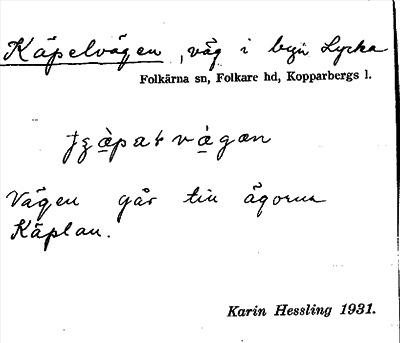 Käpelvägen, väg i byn Lycka
Folkärna sn, Folkare hd, Kopparbergs l.
Vägen går till ägorna
Käplan.
Karin Hessling 1931.